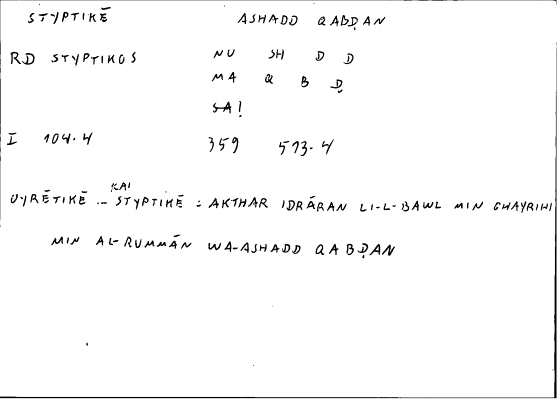 STYPTIKĒ ASHADD QABḌAN
RD STYPTIKOS NU SH D D
MA Q B Ḍ
SA!
I 104.4 359 573.4
OYRĒTIKĒ .. KAI STYPTIKĒ : AKTHAR IDRĀRAN LI-L-BAWL MIN GHAYRIHI
MIN AL-RUMMĀN WA-ASHADD QABḌAN